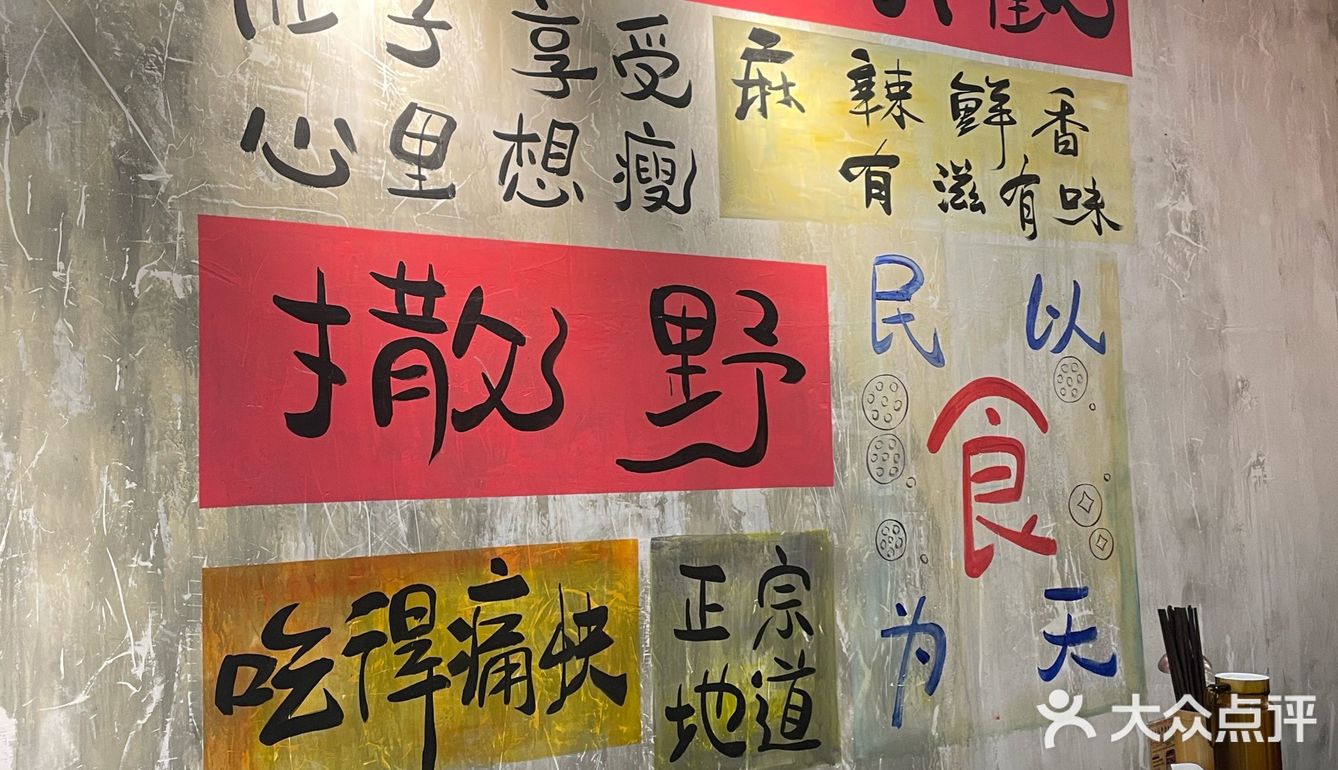 子享受
心里想瘦
麻辣鲜香
有滋有味
撒野
民以
食
为天
吃得痛快
正宗
地道
大众点评